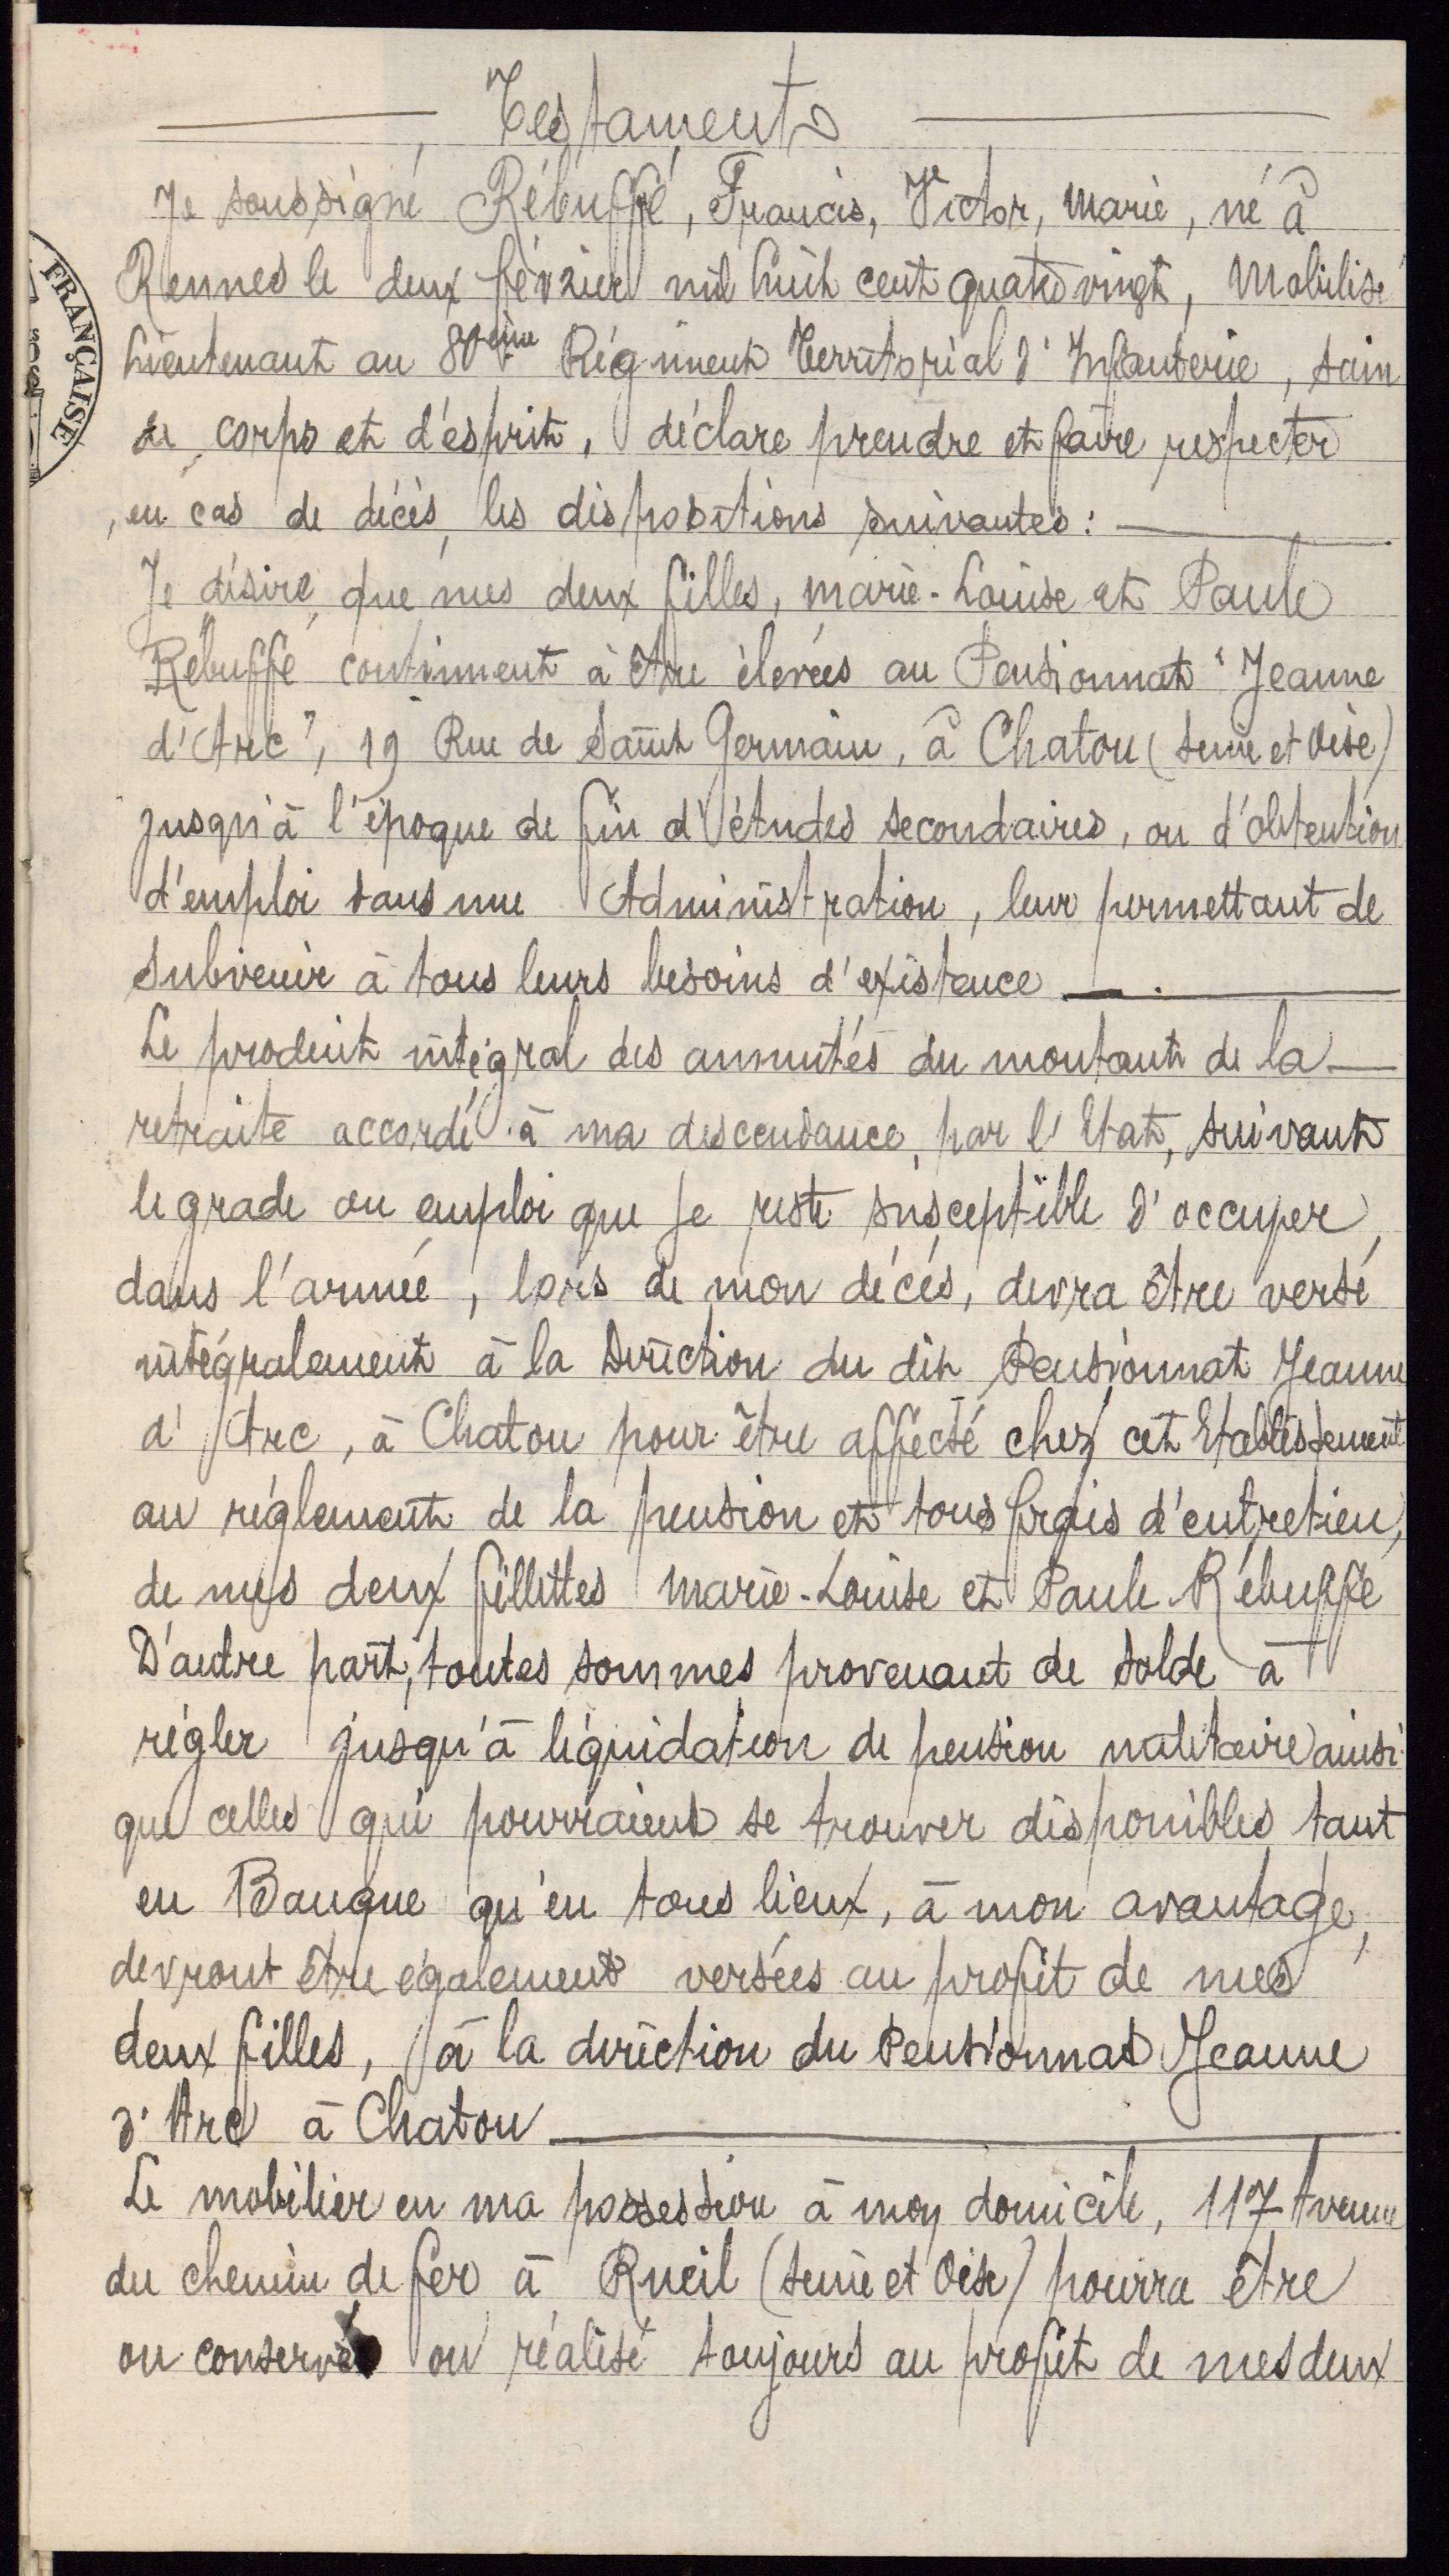 Testament
Je soussigné Rébuffé, Francis, Victor, Marie, né à
Rennes le deux février mil huit cent quatre vingt, Mobilisé
Lieutenant au 80ème Régiment Territorial d'Infanterie, sain
de corps et d'esprit, déclare prendre et faire respecter
, en cas de décès, les dispositions suivantes :
Je désire que mes deux filles, Marie-Louise et Paule
Rébuffé continuent à être élevées au Pensionnat "Jeanne
d'Arc", 19 Rue de Saint Germain, à Chatou (Seine et Oise)
jusqu'à l'époque de fin d'études secondaires, ou d'obtention
d'emploi dans une Administration, leur permettant de
subvenir à tous leurs besoins d'existence .
Le produit intégral des annuités du montant de la
retraite accordé à ma descendance, par l'Etat, suivant
le grade ou emploi que je reste susceptible d'occuper,
dans l'armée, lors de mon décés, devra être versé
intégralement à la Direction du dit Pensionnat Jeanne
d'Arc, à Chatou pour être affecté chez cet Etablissement
au réglement de la pension et tous frais d'entretien,
de mes deux fillettes Marie-Louise et Paule Rébuffé
D'autre part, toutes sommes provenant de solde à
régler jusqu'à liquidation de pension militaire ainsi
que celles qui pourraient se trouver disponibles tant
en Banque qu'en tous lieux, à mon avantage,
devront être également versées au profit de mes
deux filles, à la direction du Pensionnat Jeanne
d'Arc à Chatou
Le mobilier en ma possession à mon domicile, 117 Avenue
du chemin de fer à Rueil (Seine et Oise) pourra être
ou conservé ou réalisé toujours au profit de mes deux
FRANÇAISE